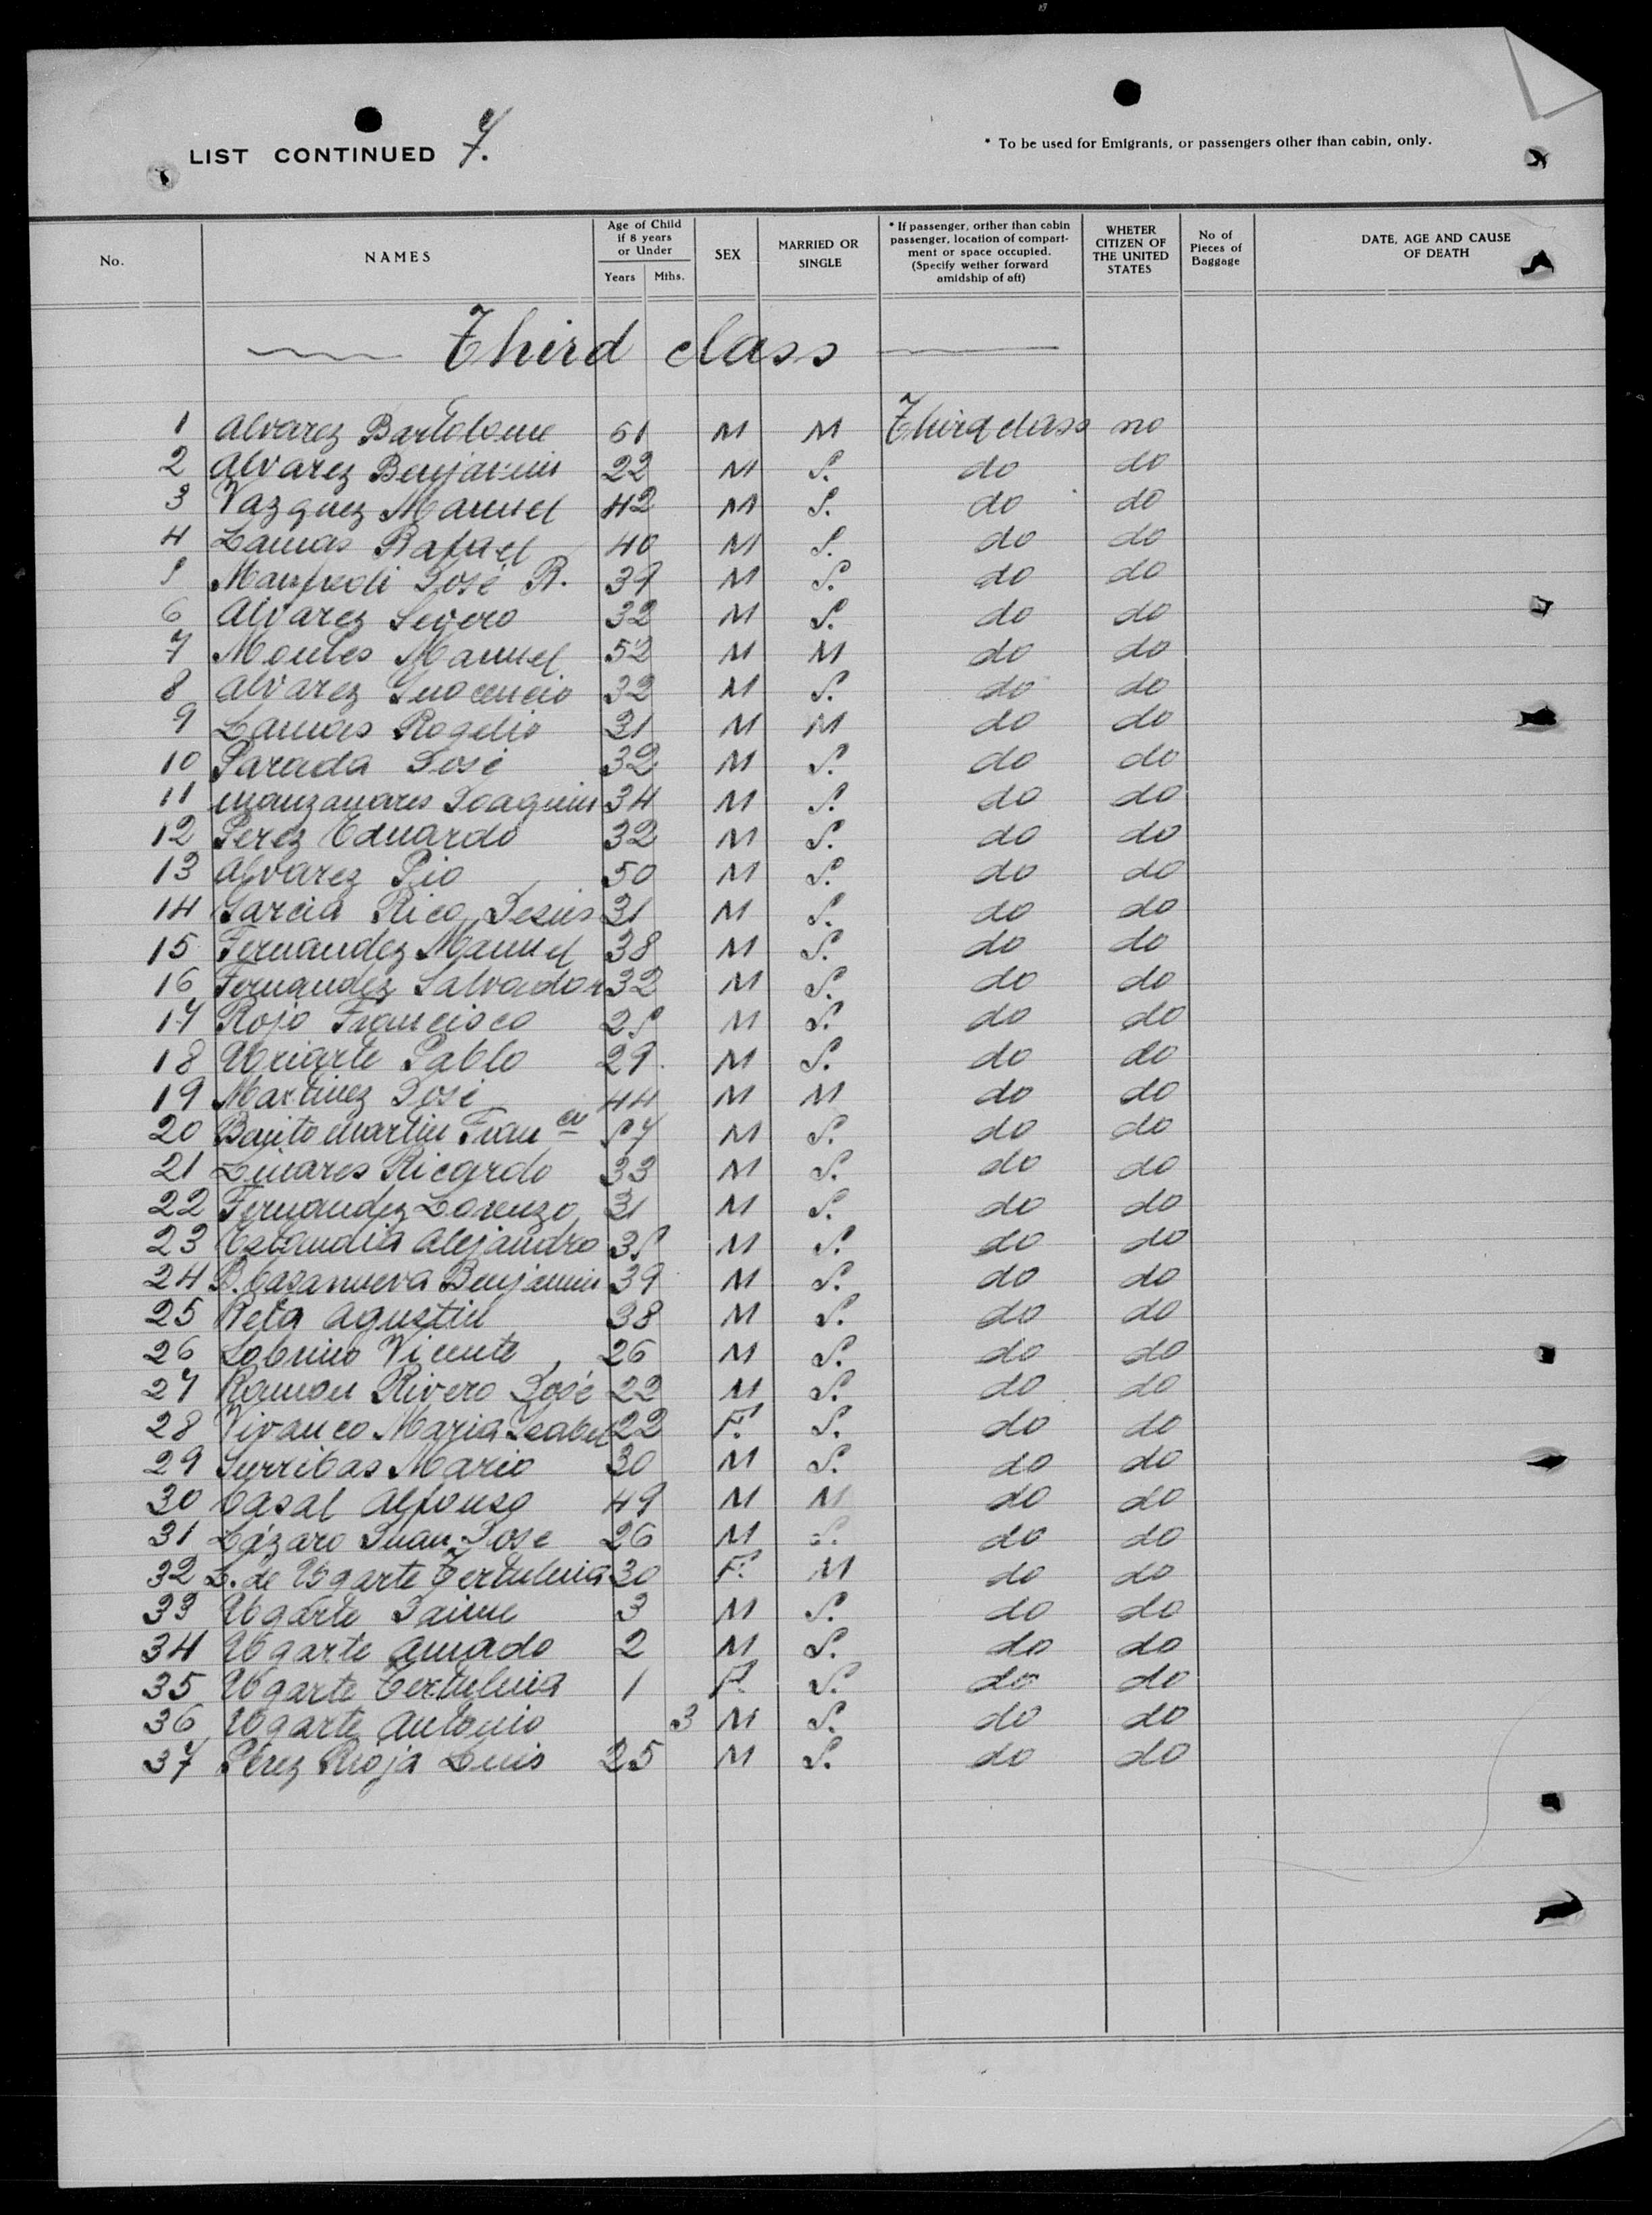 LIST CONTINUED 7.
* To be used for Emigrants, or passengers other than cabin, only.
No.
NAMES
Age of Child if 8 years or Under
Years Mths.
SEX
MARRIED OR SINGLE
* If passenger, orther than cabin passenger, location of compartment or space occupied. (Specify wether forward amidship of aft)
WHETER CITIZEN OF THE UNITED STATES
No of Pieces of Baggage
DATE, AGE AND CAUSE OF DEATH
Third class
1 Alvarez Bartolome 61 M M Third class no
2 Alvarez Benjamin 22 M S. do do
3 Vazquez Manuel 42 M S. do do
4 Lamas Rafael 40 M S. do do
5 Manfredi José R. 39 M S. do do
6 Alvarez Severo 32 M S. do do
7 Montes Manuel 52 M M do do
8 Alvarez Inocencio 32 M S. do do
9 Lamas Rogelio 31 M M do do
10 Parada José 32 M S. do do
11 Manzanares Joaquin 34 M S. do do
12 Perez Eduardo 32 M S. do do
13 Alvarez Pio 50 M S. do do
14 Garcia Rico Jesús 31 M S. do do
15 Fernandez Manuel 38 M S. do do
16 Fernandez Salvador 32 M S. do do
17 Rojo Francisco 25 M S. do do
18 Uriarte Pablo 29 M S. do do
19 Martinez José 44 M M do do
20 Benito Martin Fran co 57 M S. do do
21 Linares Ricardo 33 M S. do do
22 Fernandez Lorenzo 31 M S. do do
23 Escandia Alejandro 35 M S. do do
24 B. Casanueva Benjamin 39 M S. do do
25 Reta Agustin 38 M S. do do
26 Sobrino Vicente 26 M S. do do
27 Ramon Rivero José 22 M S. do do
28 Vivanco Maria Isabel 22 F. S. do do
29 Surribas Mario 30 M S. do do
30 Casal Alfonso 49 M M do do
31 Lázaro Juan José 26 M S. do do
32 L. de Ugarte Tertulina 30 F. M do do
33 Ugarte Jaime 3 M S. do do
34 Ugarte Amado 2 M S. do do
35 Ugarte Tertulina 1 F. S. do do
36 Ugarte Antonio 3 M S. do do
37 Pérez Rioja Luis 25 M S. do do